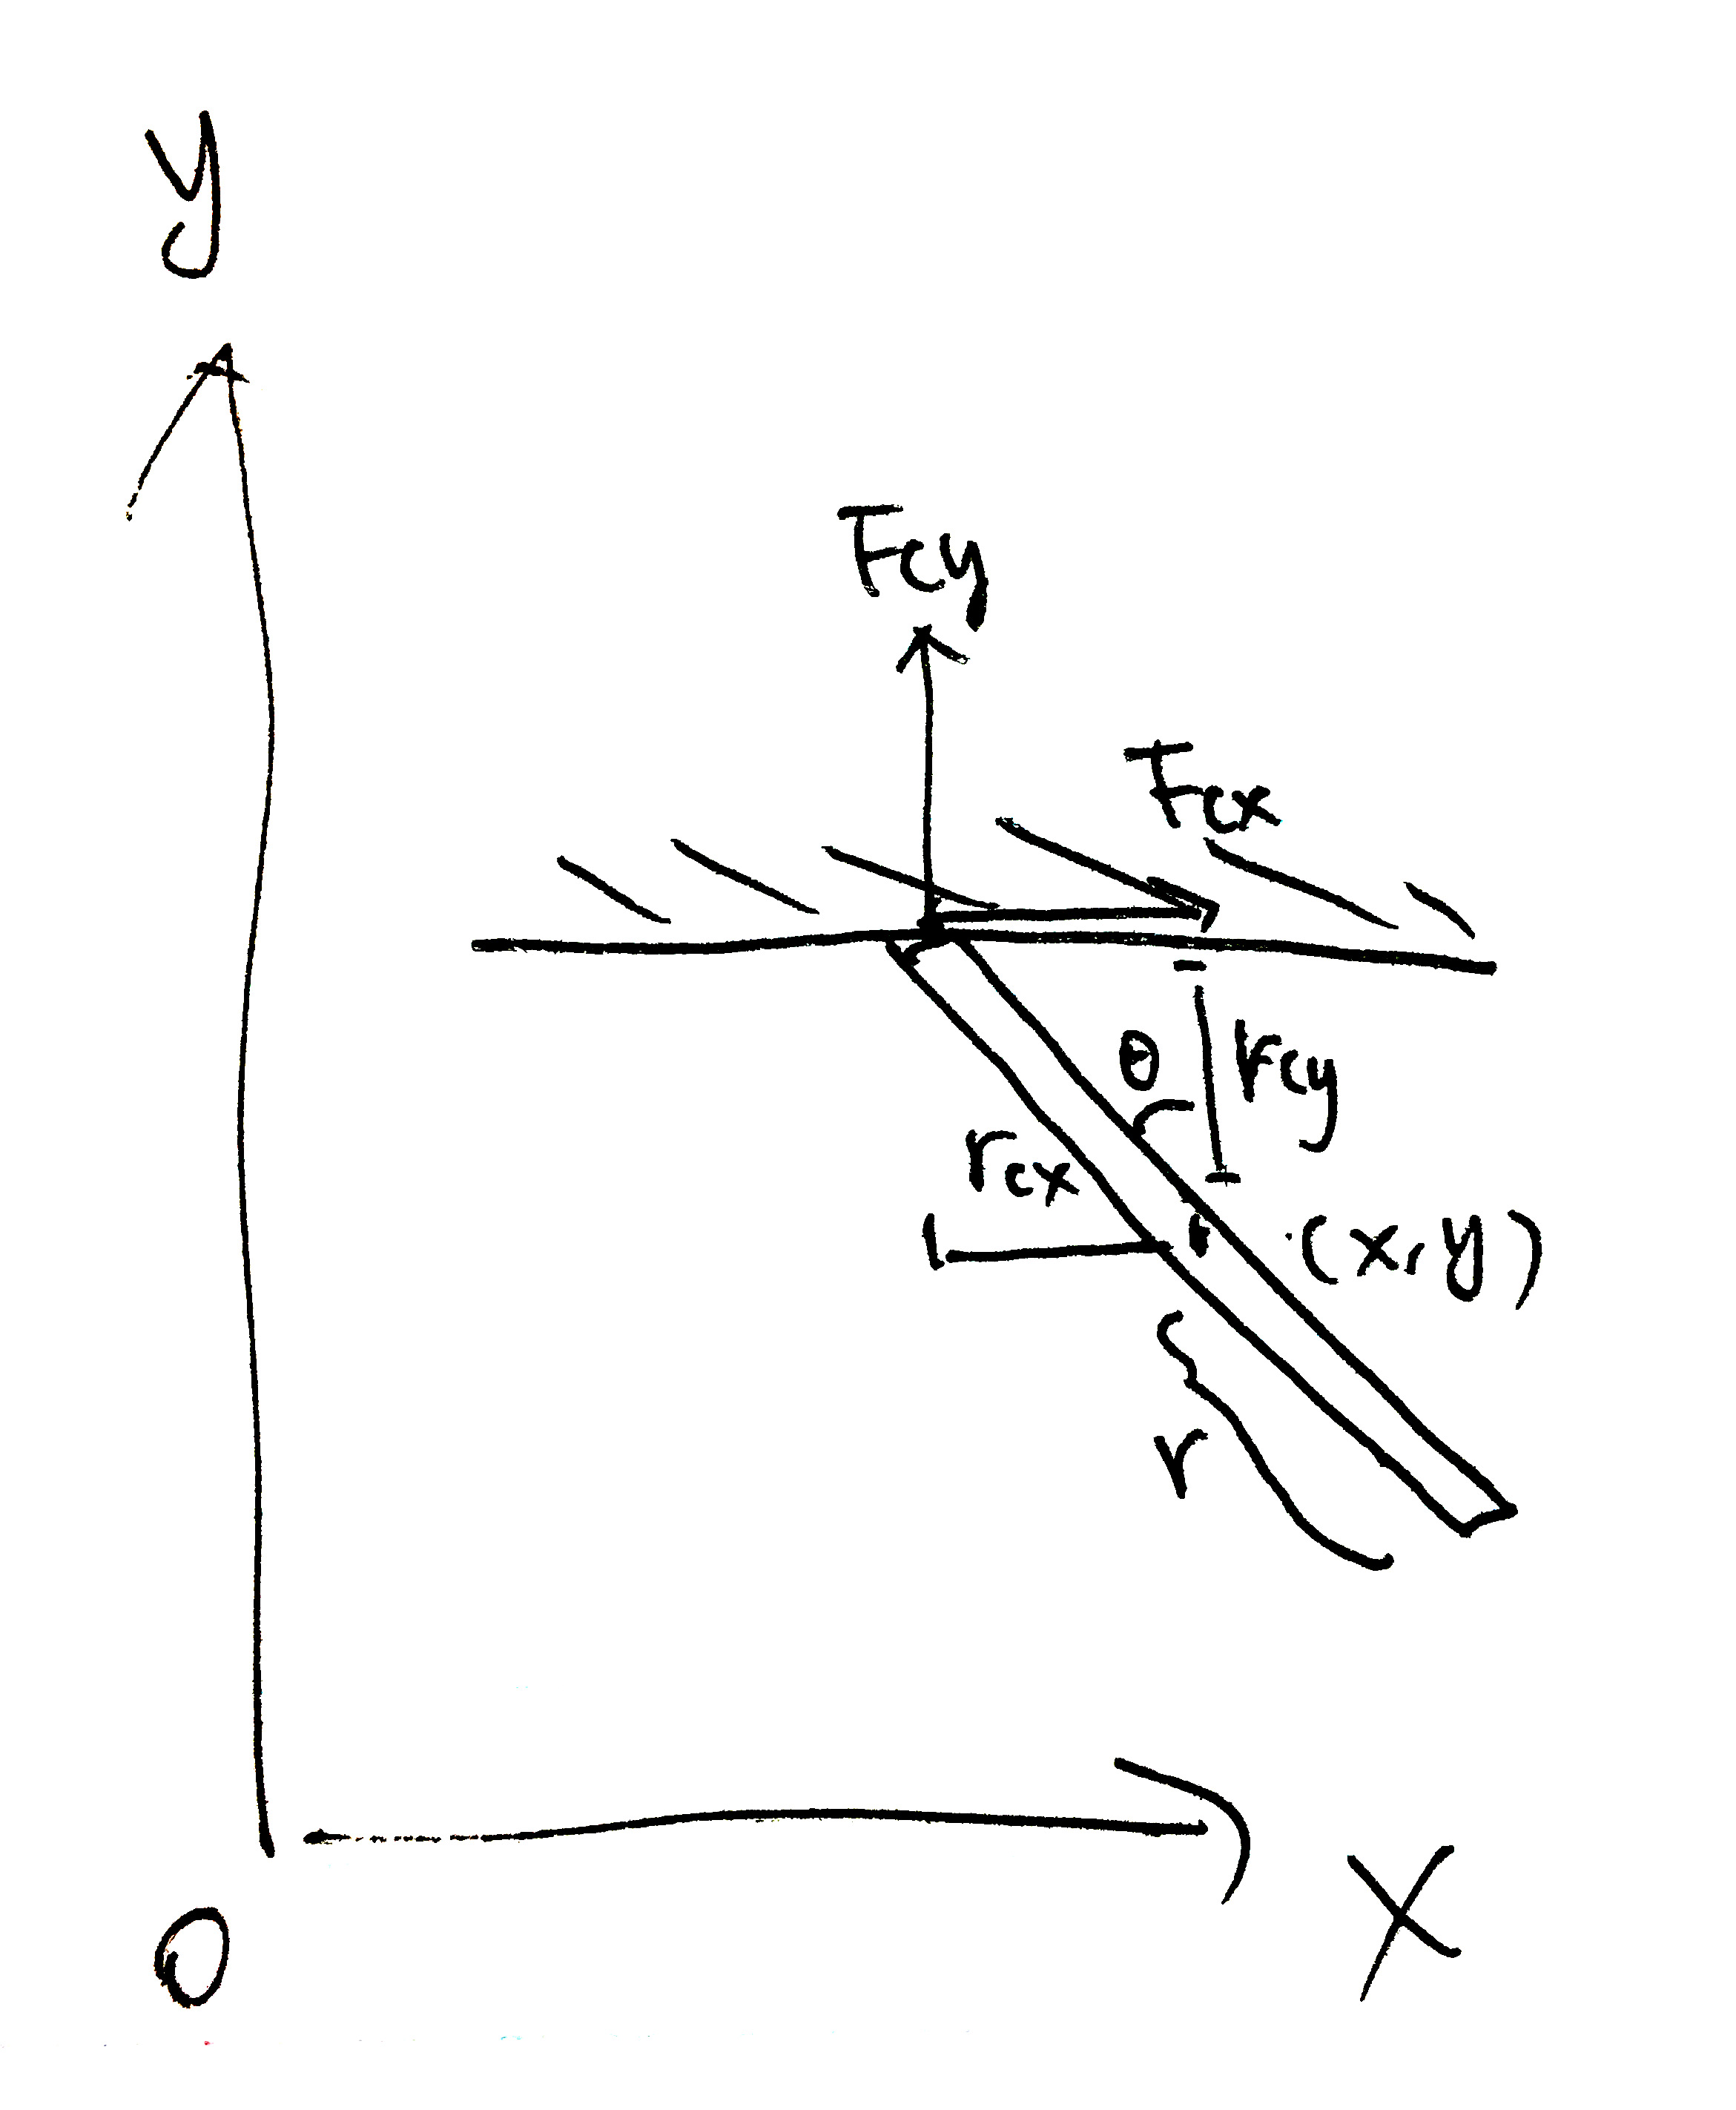 y
Fcy
Fcx
θ
rcy
rcx
(x,y)
r
O
X